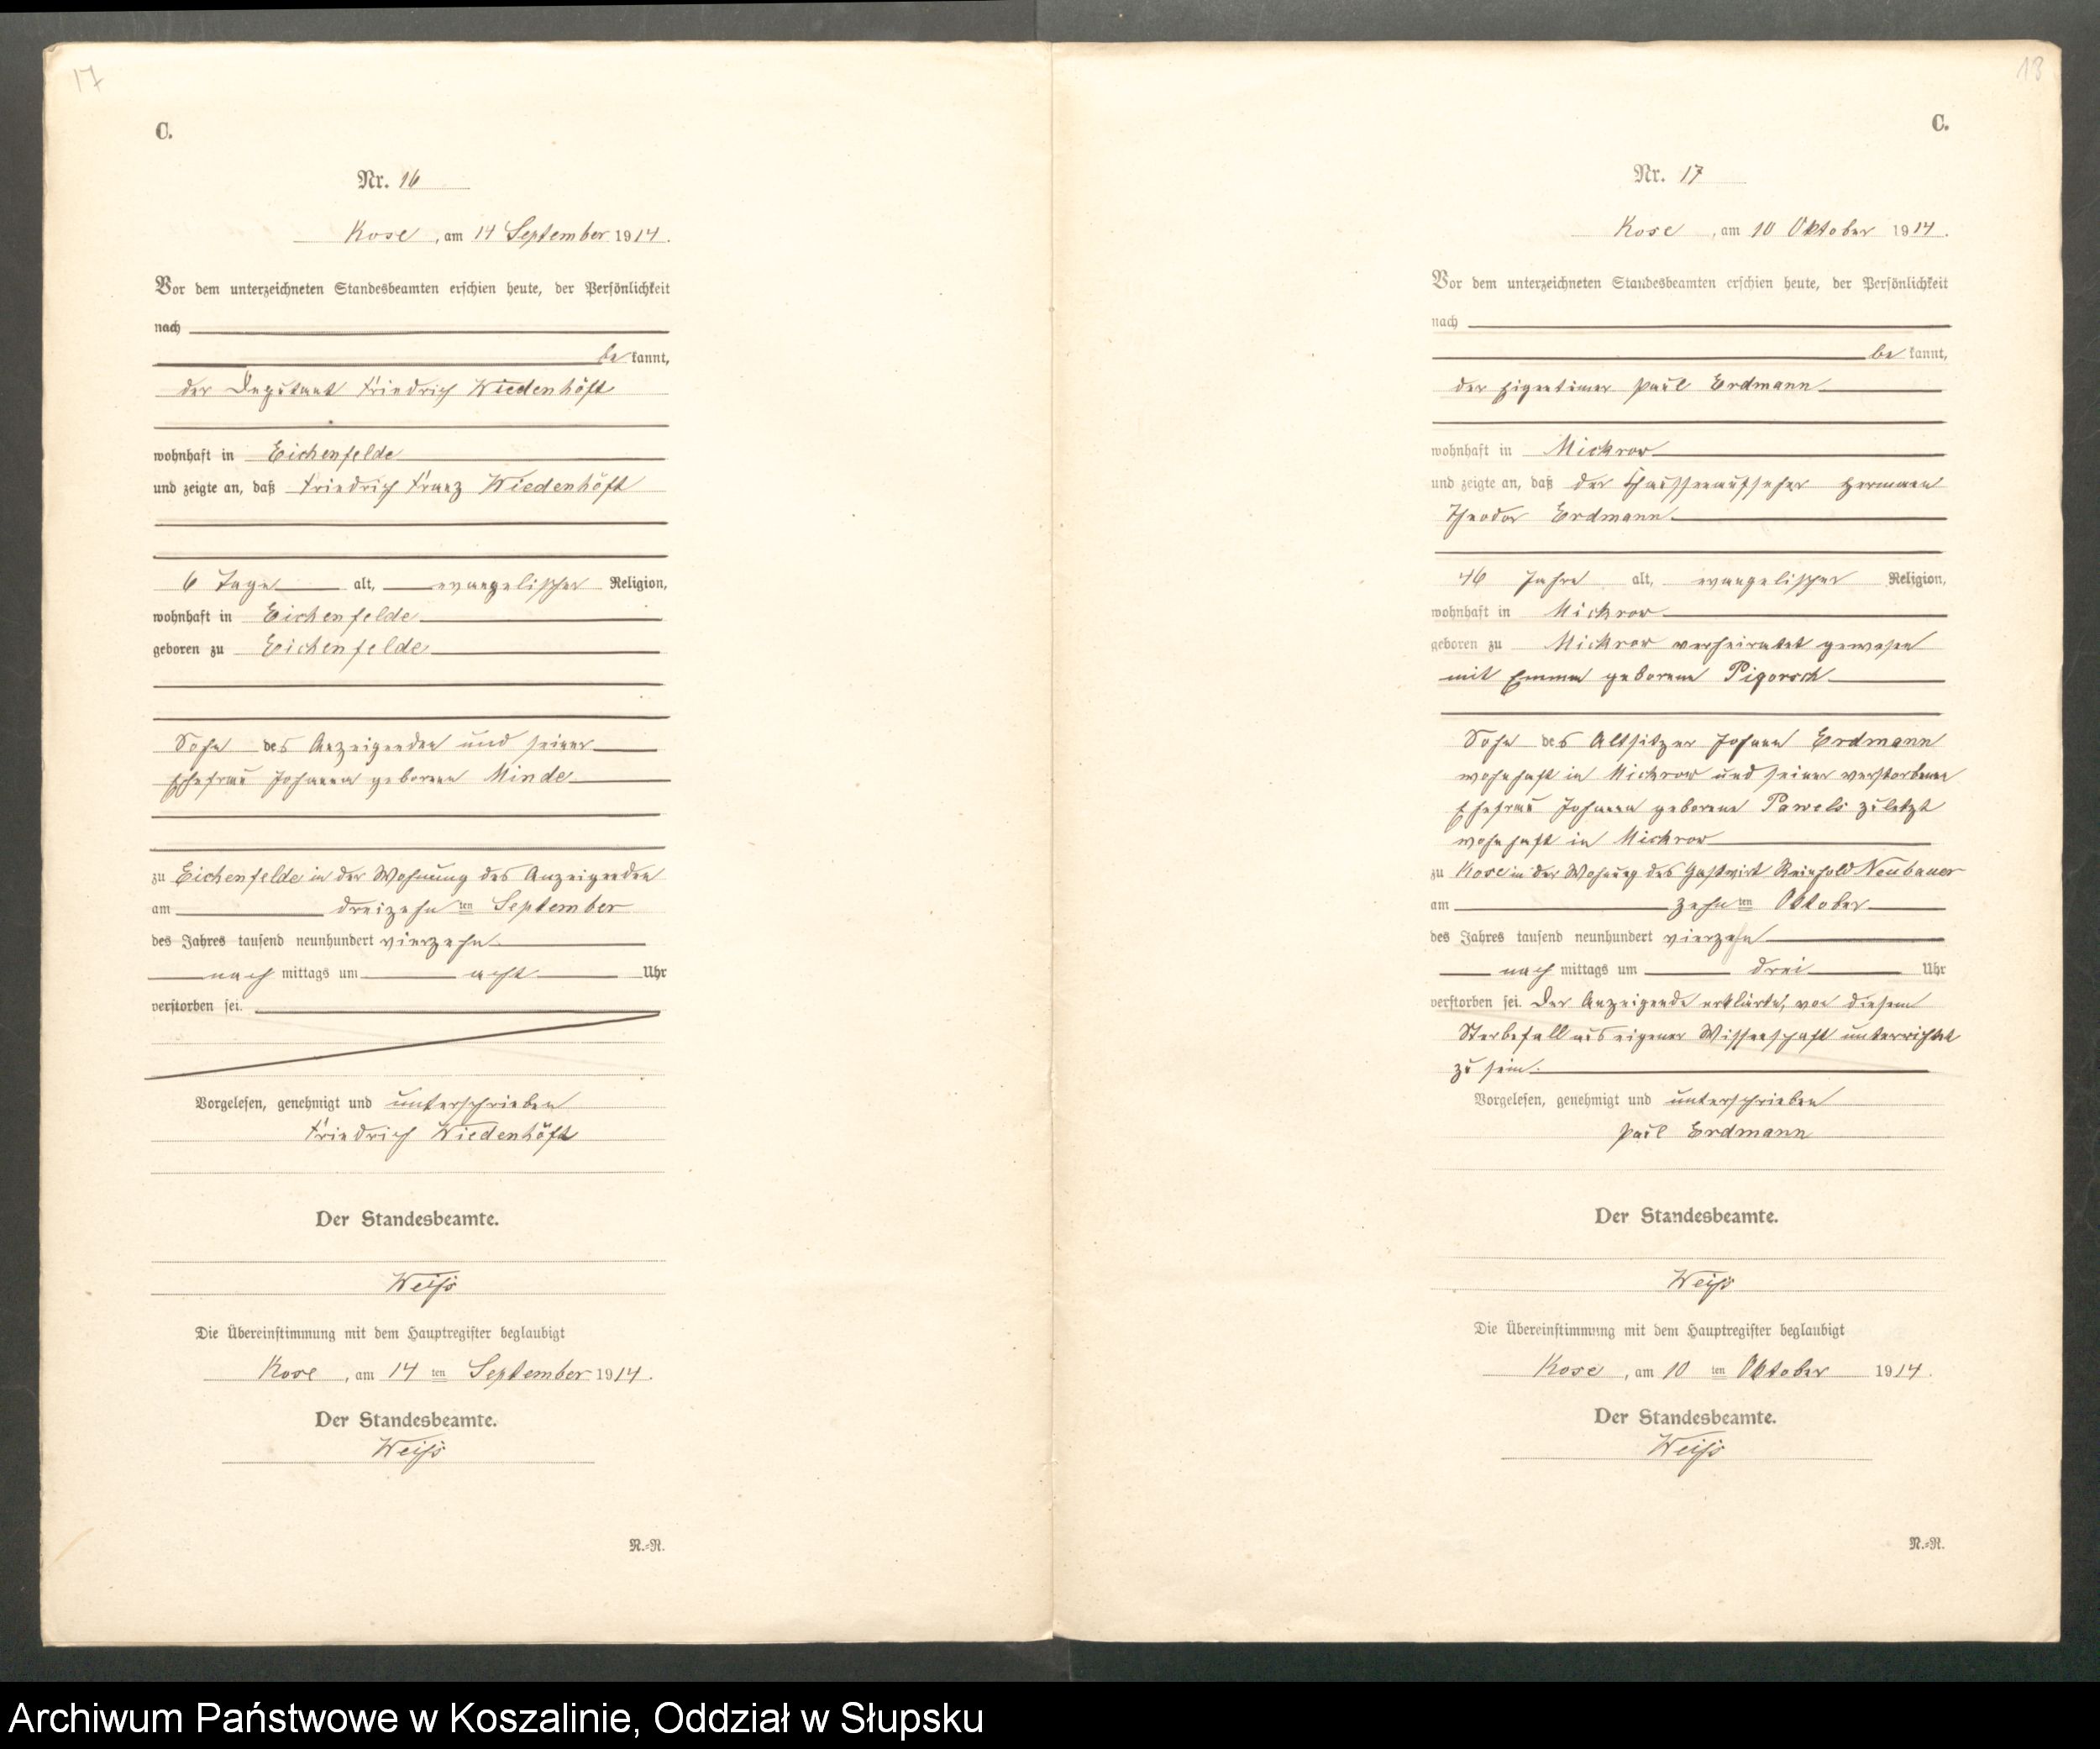 17
C.
Nr. 16
Kose, am 14 September 1914.
Vor dem unterzeichneten Standesbeamten erschien heute, der Persönlichkeit
nach
be kannt,
der Deputant Friedrich Wiedenhöft
wohnhaft in Eichenfelde
und zeigte an, daß Friedrich Franz Wiedenhöft
6 Tage alt, evangelischer Religion,
wohnhaft in Eichenfelde
geboren zu Eichenfelde
Sohn des Anzeigenden und seiner
Ehefrau Johanna geborene Minde
zu Eichenfelde in der Wohnung des Anzeigenden
am dreizehn ten September
des Jahres tausend neunhundert vierzehn
nach mittags um acht Uhr
verstorben sei.
Vorgelesen, genehmigt und unterschrieben
Friedrich Wiedenhöft
Der Standesbeamte.
Weiß
Die Übereinstimmung mit dem Hauptregister beglaubigt
Kose, am 14 ten September 1914.
Der Standesbeamte.
Weiß
N.=R.
18
C.
Nr. 17
Kose, am 10 Oktober 1914.
Vor dem unterzeichneten Standesbeamten erschien heute, der Persönlichkeit
nach
be kannt,
der Eigentümer Paul Erdmann
wohnhaft in Mickrow
und zeigte an, daß der Chausseeaufseher Hermann
Theodor Erdmann
46 Jahre alt, evangelischer Religion,
wohnhaft in Mickrow
geboren zu Mickrow verheiratet gewesen
mit Emma geborene Pigorsch
Sohn des Altsitzer Johann Erdmann
wohnhaft in Mickrow und seiner verstorbenen
Ehefrau Johanna geborene Pawels zuletzt
wohnhaft in Mickrow
zu Kose in der Wohnung des Gastwirt Reinhold Neubauer
am zehn ten Oktober
des Jahres tausend neunhundert vierzehn
nach mittags um drei Uhr
verstorben sei. Der Anzeigende erklärte, von diesem
Sterbefall aus eigener Wissenschaft unterrichtet
zu sein.
Vorgelesen, genehmigt und unterschrieben
Paul Erdmann
Der Standesbeamte.
Weiß
Die Übereinstimmung mit dem Hauptregister beglaubigt
Kose, am 10 ten Oktober 1914.
Der Standesbeamte.
Weiß
N.=R.
Archiwum Państwowe w Koszalinie, Oddział w Słupsku